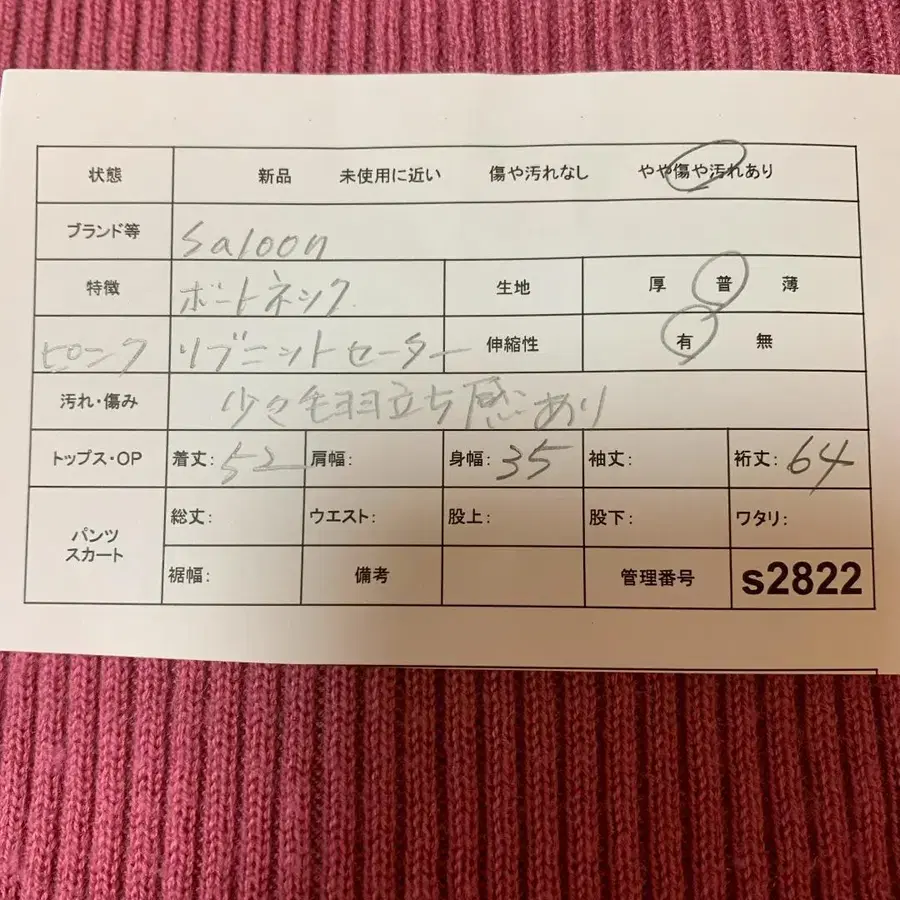 状態 新品 未使用に近い 傷や汚れなし やや傷や汚れあり
ブランド等 Saloon
特徴 ボートネック 生地 厚 普 薄
ピンク リブニットセーター 伸縮性 有 無
汚れ・傷み 少々毛羽立ち感あり
トップス・OP 着丈: 52 肩幅: 身幅: 35 袖丈: 裄丈: 64
パンツ スカート 総丈: ウエスト: 股上: 股下: ワタリ:
裾幅: 備考 管理番号 s2822